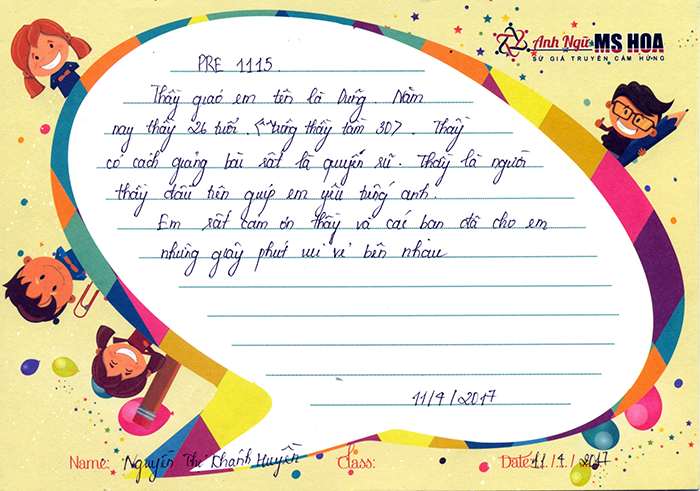 Anh Ngữ MS HOA
SỨ GIẢ TRUYỀN CẢM HỨNG
PRE 1115.
Thầy giáo em tên là Dũng. Năm
nay thầy 26 tuổi. trông thầy tầm 30). Thầy
có cách giảng bài rất là quyến rũ. Thầy là người
thầy đầu tiên giúp em yêu tiếng anh.
Em rất cảm ơn thầy và các bạn đã cho em
những giây phút vui vẻ bên nhau
11/4/2017
Name: Nguyễn Thị Khánh Huyền Class: Date: 11./4./.2017